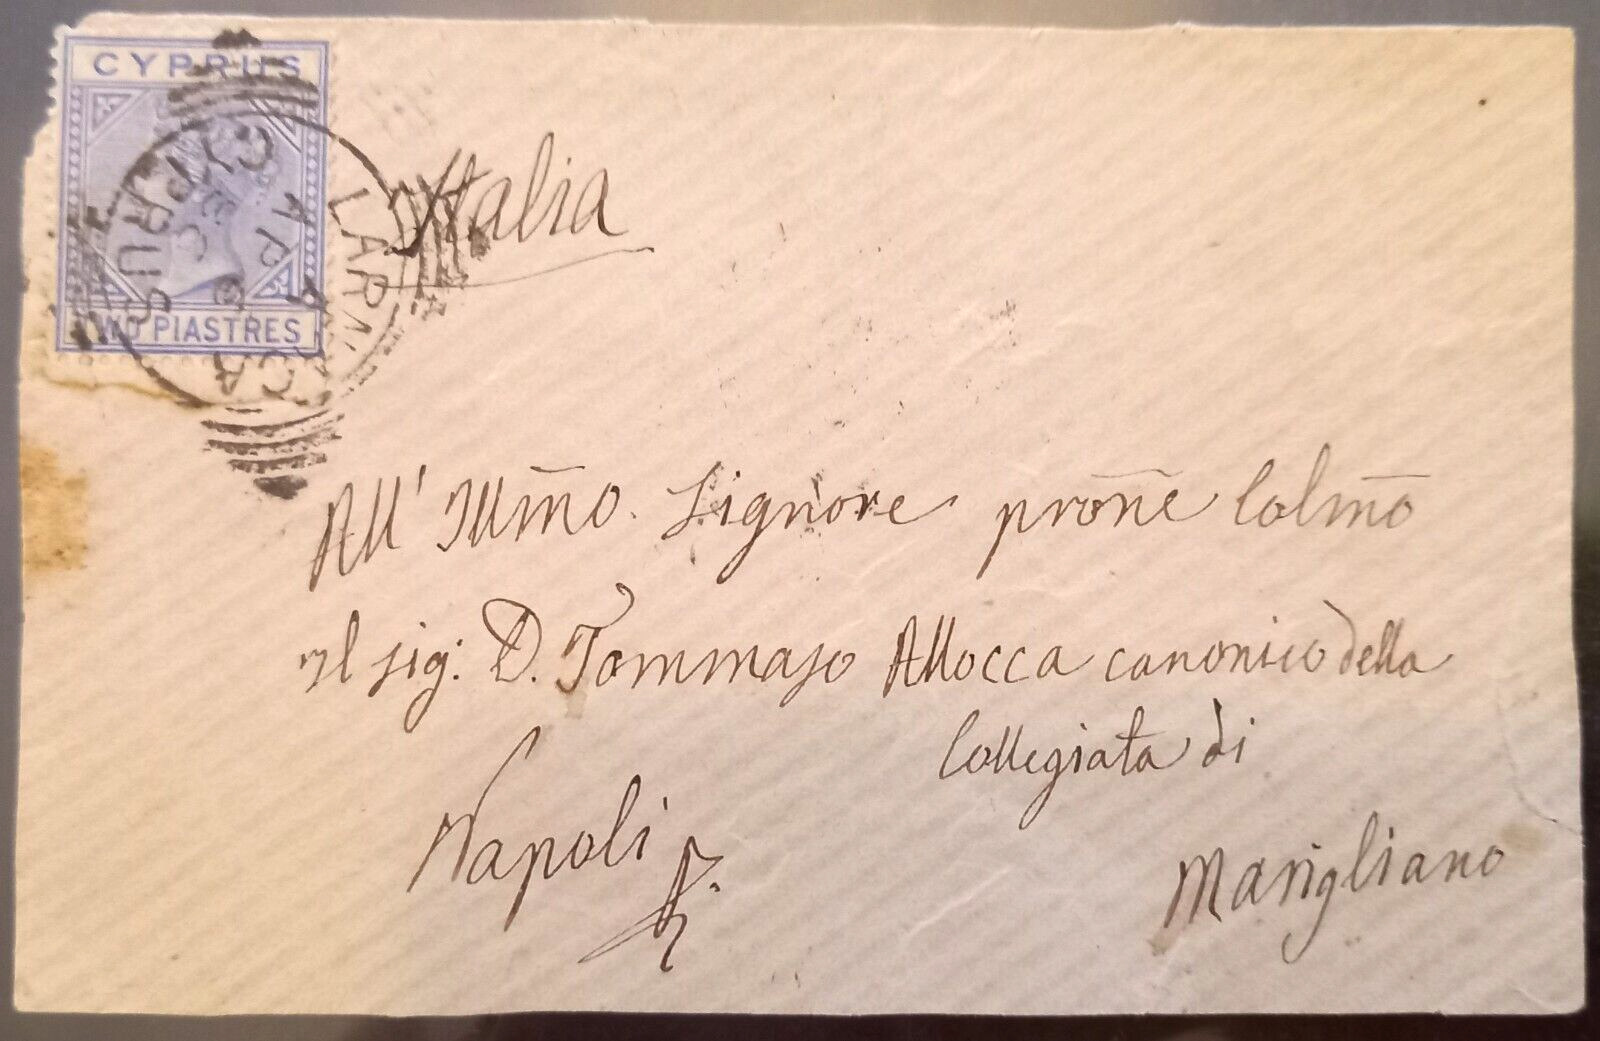 CYPRUS
TWO PIASTRES
LARNACA
CYPRUS
AP
Italia
All' Illm̄o. Signore prōne Colm̄o
Il sig: D. Tommaso Allocca canonico della
Collegiata di
Napoli
Marigliano